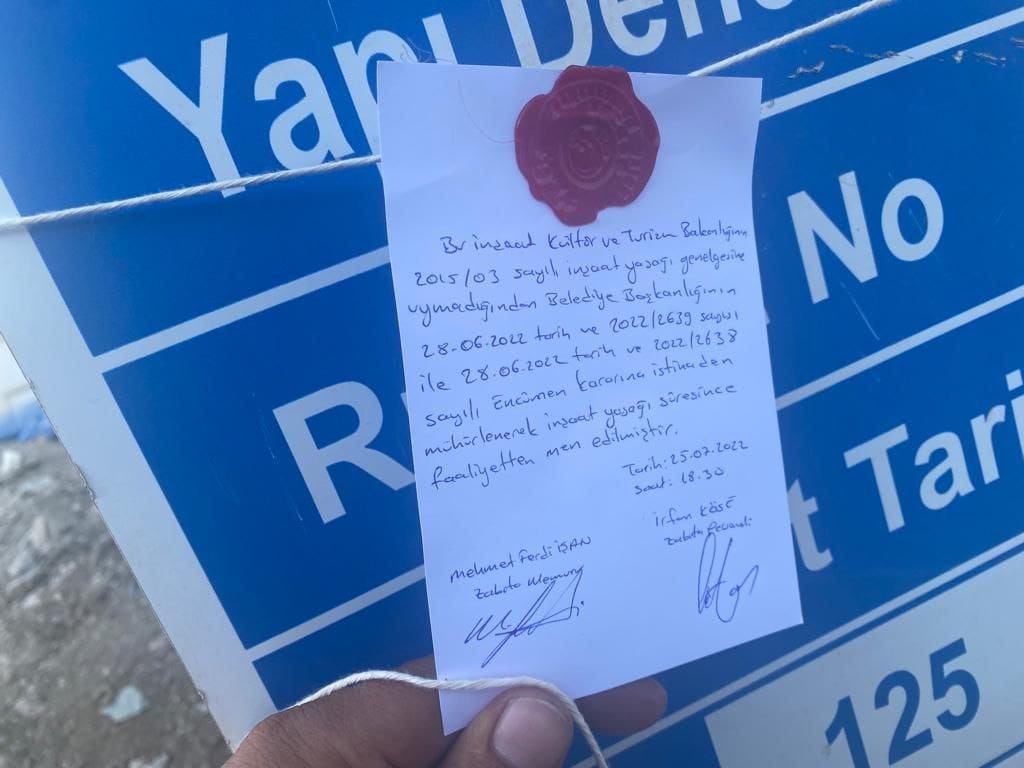 Yapı Dene
No
R
t Tari
125
Bu inşaat Kültür ve Turizm Bakanlığının
2015/03 sayılı inşaat yasağı genelgesine
uymadığından Belediye Başkanlığının
28-06.2022 tarih ve 2022/2639 sayısı
ile 28.06.2022 tarih ve 2022/2638
sayılı Encümen kararına istinaden
mühürlenerek inşaat yasağı süresince
faaliyetten men edilmiştir.
Tarih: 25.07.2022
Saat: 18.30
Mehmet Ferdi İŞAN
Zabıta Memuru
İrfan KÖSE
Zabıta